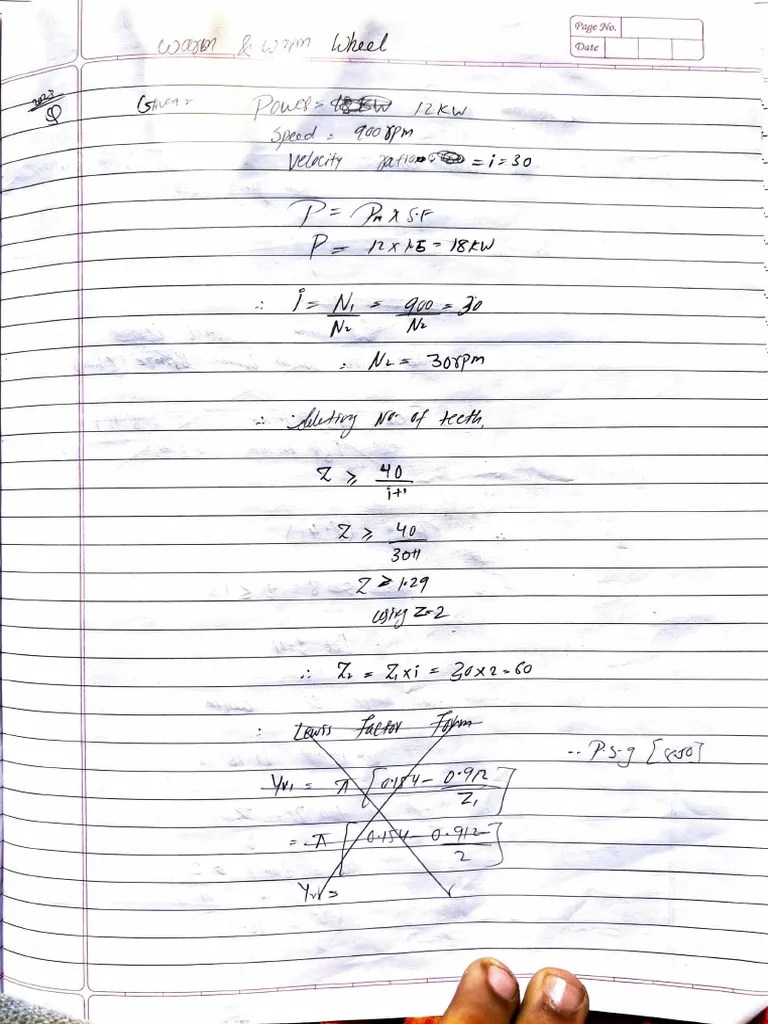 Page No.
Date
Worm & Worm Wheel
2023
Q Given Power = 12 KW
Speed = 900 rpm
Velocity ratio = i = 30
P = Pn x S.F
P = 12 x 1.5 = 18 KW
∴ i = N1/N2 = 900/N2 = 30
∴ N2 = 30 rpm
∴ No. of teeth.
Z ≥ 40/i+1
Z ≥ 40/30+1
Z ≥ 1.29
using Z=2
∴ Z2 = Z1 x i = 30 x 2 = 60
: Lewis Factor Form
.. P.S.g [8.50]
Yv1 = π [0.154 - 0.912/Z1]
= π [0.154 - 0.912/2]
Yv1 =